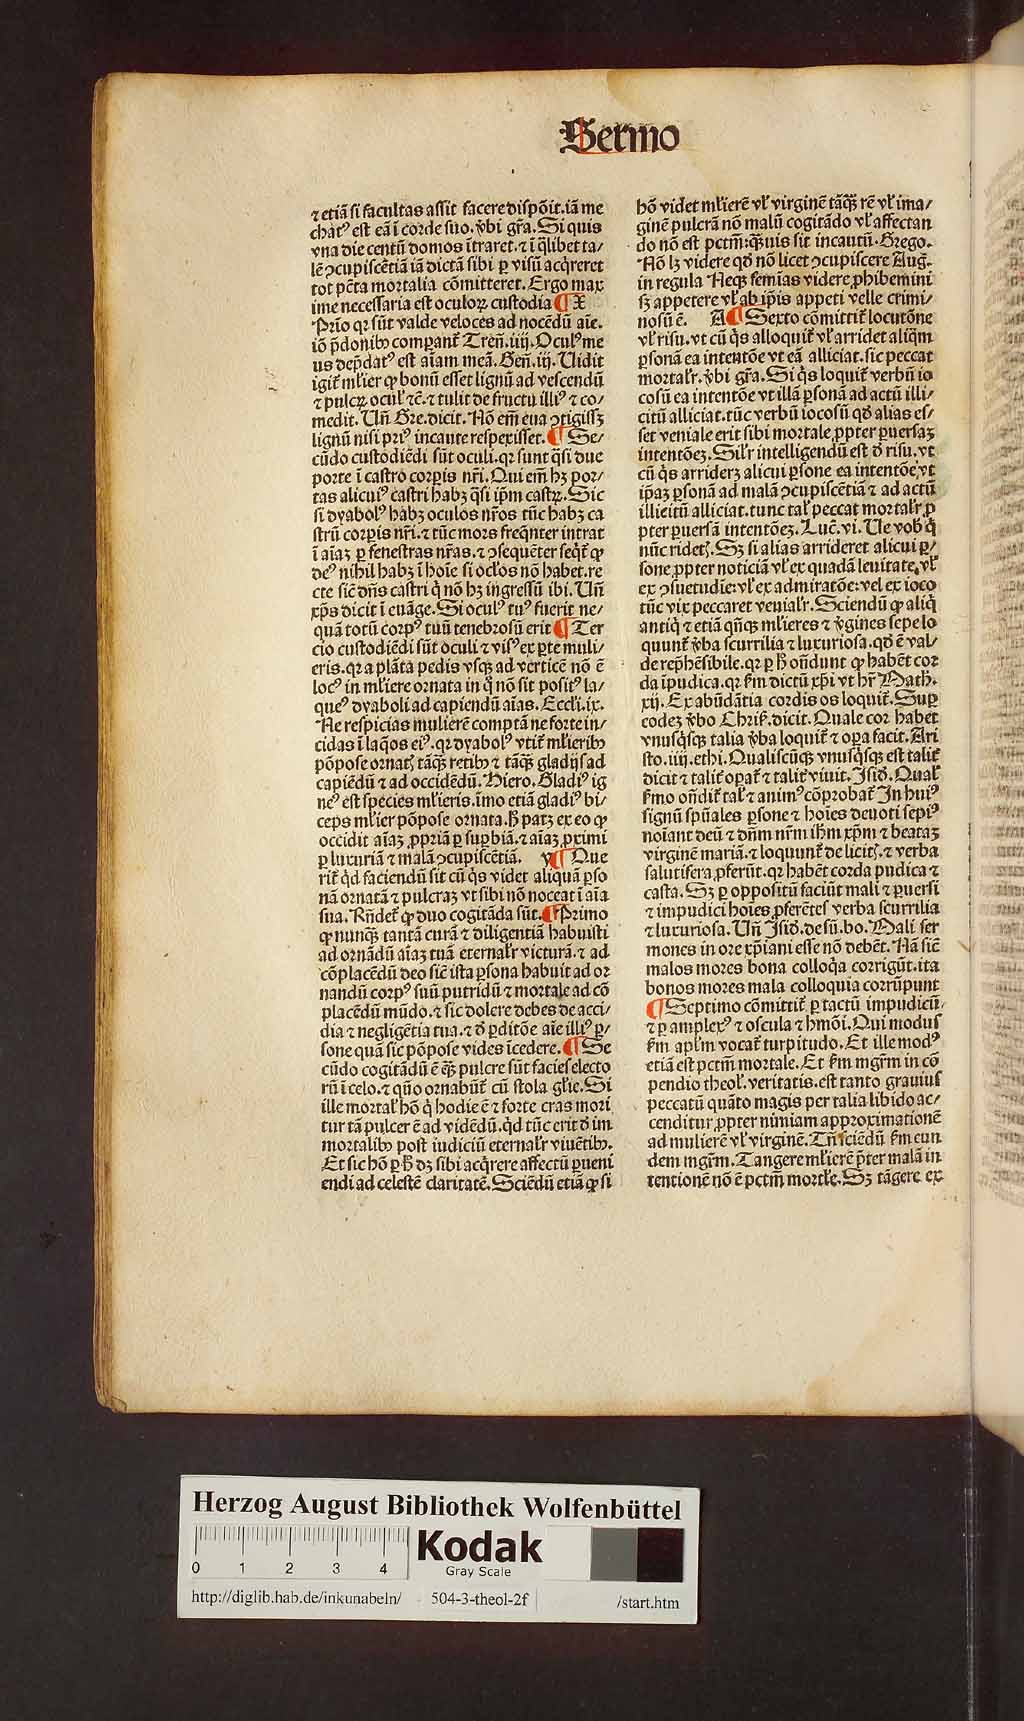 Sermo
⁊ etiã si facultas assit facere dispõit.iã me
chatꝰ est eã ĩ corde suo.v̾bi gr̃a.Si quis
vna die centũ domos ĩtraret.⁊ ĩ q̃libet ta/
lẽ ↄcupiscẽtiã iã dictã sibi ꝑ visũ acq̃reret
tot pctã mortalia cõmitteret.Ergo max
ime necessaria est oculoꝝ custodia ¶ X
Prĩo qꝛ sũt valde veloces ad nocẽdũ aĩe.
iõ p̃donibꝰ comꝑant᷑ Treñ.iiij.Oculꝰ me
us dep̃datꝰ est aĩam meã.Geñ.iij.Uidit
igit᷑ ml̃ier ꝙ bonũ esset lignũ ad vescendũ
⁊ pulcꝝ ocul᷑ ⁊c̃.⁊ tulit de fructu illiꝰ ⁊ co/
medit.Uñ Gre.dicit.Nõ em̃ eua ↄtigissꝫ
lignũ nisi priꝰ incaute respexisset.¶ Se/
cũdo custodiẽdi sũt oculi.qꝛ sunt q̃si due
porte ĩ castro corꝑis nr̃i.Qui em̃ hꝫ por/
tas alicuiꝰ castri habꝫ q̃si ip̃m castꝝ.Sic
si dyabolꝰ habꝫ oculos nr̃os tũc habꝫ ca
strũ corꝑis nr̃i.⁊ tũc mors freq̃nter intrat
ĩ aĩaꝫ ꝑ fenestras nr̃as.⁊ ↄsequẽter seq̃t᷑ ꝙ
deꝰ nihil habꝫ ĩ hoĩe si ocl̃os nõ habet.re
cte sic̃ dñs castri q̃ nõ hꝫ ingressũ ibi.Uñ
xp̃s dicit ĩ euãge.Si oculꝰ tuꝰ fuerit ne/
quã totũ corpꝰ tuũ tenebrosũ erit ¶ Ter
cio custodiẽdi sũt oculi ⁊ visꝰ ex ꝑte muli/
eris.qꝛ a plãta pedis vsqꝫ ad verticẽ nõ ẽ
locꝰ in ml̃iere ornata in q̃ nõ sit positꝰ la/
queꝰ dyaboli ad capiendũ aĩas.Eccl̃i.ix.
Ne respicias mulierẽ comptã ne forte in/
cidas ĩ laq̃os eiꝰ.qꝛ dyabolꝰ vtit᷑ ml̃ieribꝰ
põpose ornat᷑ tãqꝫ retibꝰ ⁊ tãqꝫ gladijs ad
capiẽdũ ⁊ ad occidẽdũ.Hiero.Gladiꝰ ig
neꝰ est species ml̃ieris.ĩmo etiã gladiꝰ bi/
ceps ml̃ier põpose ornata.h̃ patꝫ ex eo ꝙ
occidit aĩaꝫ ꝓpriã ꝑ suꝑbiã.⁊ aĩaꝫ ꝓximi
ꝑ luxuriã ⁊ malã ↄcupiscẽtiã. y¶ Que
rit᷑ q̃d faciendũ sit cũ q̃s videt aliquã ꝑso
nã ornatã ⁊ pulcraꝫ vt sibi nõ noceat ĩ aĩa
sua.Rñdet᷑ ꝙ duo cogitãda sũt.¶ Primo
ꝙ nunqꝫ tantã curã ⁊ diligentiã habuisti
ad ornãdũ aĩaꝫ tuã eternal᷑r victurã.⁊ ad
cõplacẽdũ deo sic̃ ista ꝑsona habuit ad or
nandũ corpꝰ suũ putridũ ⁊ mortale ad cõ
placẽdũ mũdo.⁊ sic dolere debes de acci/
dia ⁊ negligẽtia tua.⁊ d̾ ꝑditõe aĩe illiꝰ ꝑ/
sone quã sic põpose vides ĩcedere.¶ Se
cũdo cogitãdũ ẽ qꝫ pulcre sũt facies electo
rũ ĩ celo.⁊ quõ ornabũt᷑ cũ stola gl̃ie.Si
ille mortal᷑ hõ q̃ hodie ẽ ⁊ forte cras mori
tur tã pulcer ẽ ad vidẽdũ.q̃d tũc erit d̾ im
mortalibꝰ post iudiciũ eternal᷑r viuẽtibꝰ.
Et sic hõ ꝑ h̃ dꝫ sibi acq̃rere affectũ ꝑueni
endi ad celestẽ claritatẽ.Sciẽdũ etiã ꝙ si
hõ videt ml̃ierẽ vl᷑ virginẽ tãqꝫ rẽ vl᷑ ima/
ginẽ pulcrã nõ malũ cogitãdo vl᷑ affectan
do nõ est pctm̃:qꝫuis sit incautũ.Grego.
Nõ lꝫ videre qd̾ nõ licet ↄcupiscere Aug̃.
in regula Neqꝫ femĩas videre ꝓhibemini
sꝫ appetere vl᷑ ab ip̃is appeti velle crimi/
nosũ ẽ. A¶ Sexto cõmittit᷑ locutõne
vl᷑ risu.vt cũ q̃s alloquit᷑ vl᷑ arridet aliq̃m
ꝑsonã ea intentõe vt eã alliciat.sic peccat
mortal᷑r.v̾bi gr̃a.Si q̃s loquit᷑ verbũ io
cosũ ea intentõe vt illã ꝑsonã ad actũ illi/
citũ alliciat.tũc verbũ iocosũ qd̾ alias es/
set veniale erit sibi mortale ꝓpter ꝑuersaꝫ
intentõeꝫ.Sil᷑r intelligendũ est d̾ risu.vt
cũ q̃s arrideꝫ alicui ꝑsone ea intentõe,vt
ip̃aꝫ ꝑsonã ad malã ↄcupiscẽtiã ⁊ ad actũ
illicitũ alliciat.tunc tal᷑ peccat mortal᷑r ꝓ
pter ꝑuersã intentõeꝫ.Luc̃.vi.Ue vob᷑ q̃
nũc ridet᷑.Sꝫ si alias arrideret alicui ꝑ/
sone ꝓpter noticiã vl᷑ ex quadã leuitate.vl᷑
ex ↄsuetudĩe:vl᷑ ex admiratõe:vel ex ioco
tũc vix peccaret venial᷑r.Sciendũ ꝙ aliq̃
antiq̃ ⁊ etiã qñqꝫ ml̃ieres ⁊ v̾gines sepe lo
quunt᷑ v̾ba scurrilia ⁊ luxuriosa.qd̾ ẽ val/
de rep̃hẽsibile.qꝛ ꝑ h̃ oñdunt ꝙ habẽt cor
da ĩpudica.qꝛ ẜm dictũ xp̃i vt hr̃ Math̃.
xij.Ex abũdãtia cordis os loquit᷑.Suꝑ
codeꝫ v̾bo Chris̃.dicit.Quale cor habet
vnusq̃sqꝫ talia v̾ba loquit᷑ ⁊ oꝑa facit.Ari
sto.iiij.ethi.Qualiscũqꝫ vnusq̃sqꝫ est talit᷑
dicit ⁊ talit᷑ oꝑat᷑ ⁊ talit᷑ viuit.Isid̾.Qual᷑
ẜmo oñdit᷑ tal᷑ ⁊ animꝰ cõprobat᷑ In huiꝰ
signũ spũales ꝑsone ⁊ hoĩes deuoti sepiꝰ
noĩant deũ ⁊ dñm nr̃m ih̃m xp̃m ⁊ beataꝫ
virginẽ mariã.⁊ loquunt᷑ de licit᷑.⁊ verba
salutifera ꝓferũt.qꝛ habẽt corda pudica ⁊
casta.Sꝫ ꝑ oppositũ faciũt mali ⁊ ꝑuersi
⁊ impudici hoĩes ꝓferẽtes verba scurrilia
⁊ luxuriosa.Uñ Isid̾.de sũ.bo.Mali ser
mones in ore xp̃iani esse nõ debẽt.Nã sic̃
malos mores bona colloq̃a corrigũt.ita
bonos mores mala colloquia corrũpunt
¶ Septimo cõmittit᷑ ꝑ tactũ impudicũ/
⁊ ꝑ amplexꝰ ⁊ oscula ⁊ hm̃õi.Qui modus
ẜm apl̃m vocat᷑ turpitudo.Et ille modꝰ
etiã est pctm̃ mortale.Et ẜm mgr̃m in cõ
pendio theol᷑.veritatis.est tanto grauius
peccatũ quãto magis per talia libido ac/
cenditur ꝓpter nimiam approximationẽ
ad mulierẽ vl᷑ virginẽ.Tñ sciẽdũ ẜm eun
dem mgr̃m.Tangere ml̃ierẽ p̃ter malã in
tentionẽ nõ ẽ pctm̃ mortl̃e.Sꝫ tãgere ex
Herzog August Bibliothek Wolfenbüttel
0 1 2 3 4
Kodak
Gray Scale
http://diglib.hab.de/inkunabeln/ 504-3-theol-2f /start.htm